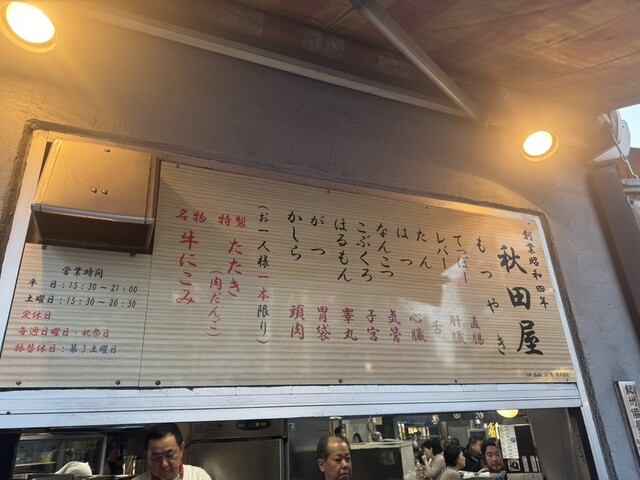 創業昭和四年
秋田屋
もつやき
てっぽー 直腸
レバー 肝臓
たん 舌
はつ 心臓
なんこつ 気管
こぶくろ 子宮
はるもん 睾丸
がつ 胃袋
かしら 頭肉
(お一人様一本限り)
特製 たたき
(肉だんご)
名物 牛にこみ
営業時間
平 日:15:30~21:00
土曜日:15:30~20:30
定休日
毎週日曜日・祝祭日
振替休日:第3土曜日